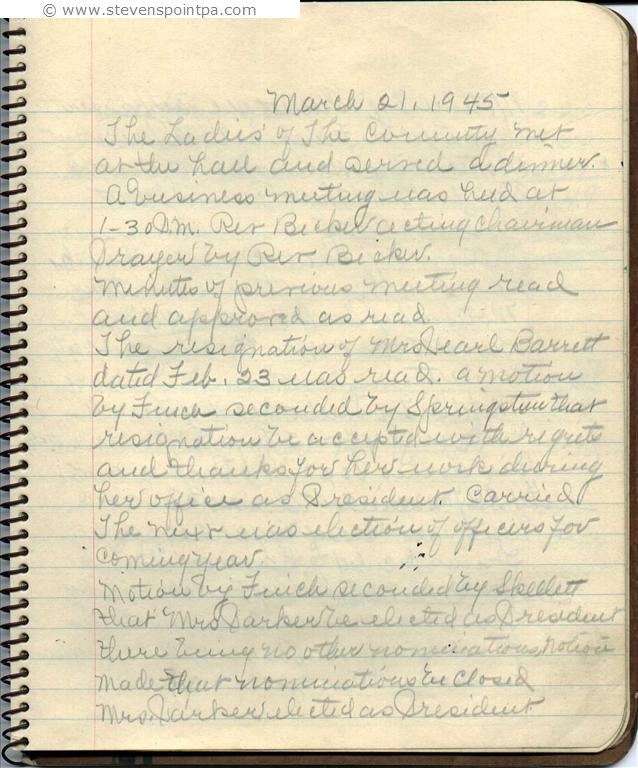 © www.stevenspointpa.com
March 21, 1945
The Ladies' of The Community met
at the hall and served a dinner.
A business meeting was held at
1-30 P.M. Rev Becker acting chairman
Prayer by Rev Becker.
Minutes of previous meeting read
and approved as read
The resignation of Mrs Pearl Barrett
dated Feb. 23 was read. a motion
by Finch seconded by Springsteen that
resignation be accepted with regrets
and thanks for her work during
her office as President. Carried
The next was election of officers for
coming year.
Motion by Finch seconded by Skellett
that Mrs Parker be elected as President
there being no other nominations, motion
made that nominations be closed
Mrs. Parker elected as President